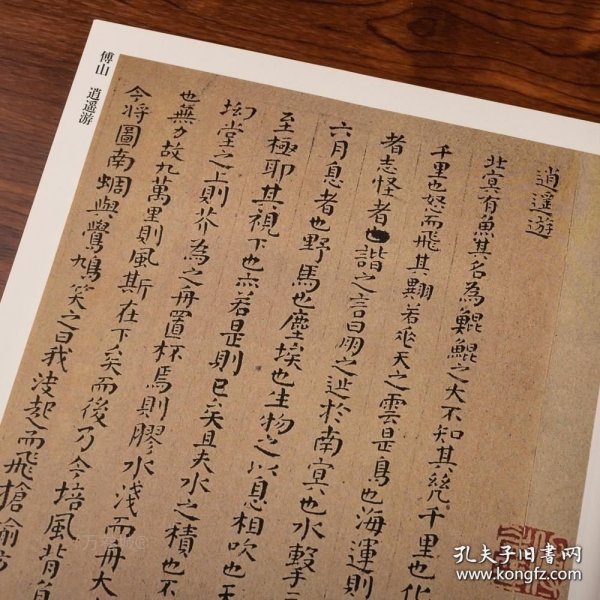 傅山 逍遥游
逍遥遊
北冥有魚其名為鯤鯤之大不知其幾千里也化
千里也怒而飛其翼若垂天之雲是鳥也海運則
者志怪者也諧之言曰鵬之徙於南冥也水擊
六月息者也野馬也塵埃也生物之以息相吹也天
至極耶其視下也亦若是則已矣且夫水之積也不
坳堂之上則芥為之舟置杯焉則膠水淺而舟大
也無力故九萬里則風斯在下矣而後乃今培風背負
今將圖南蜩與鷽鳩笑之曰我決起而飛槍榆枋
孔夫子旧书网
www.kongfz.com